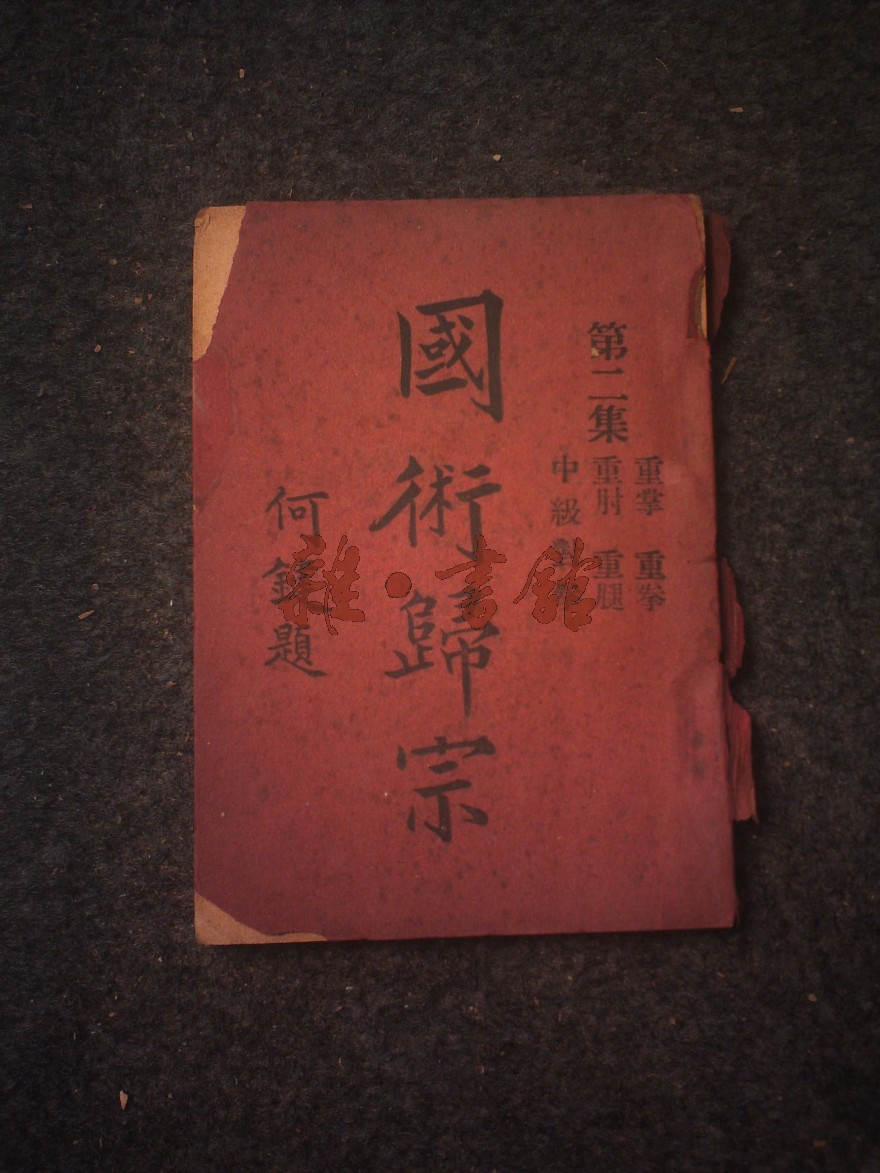 第二集
重掌 重拳
重肘 重腿
中級
國術歸宗
何鍵題
雜·書館